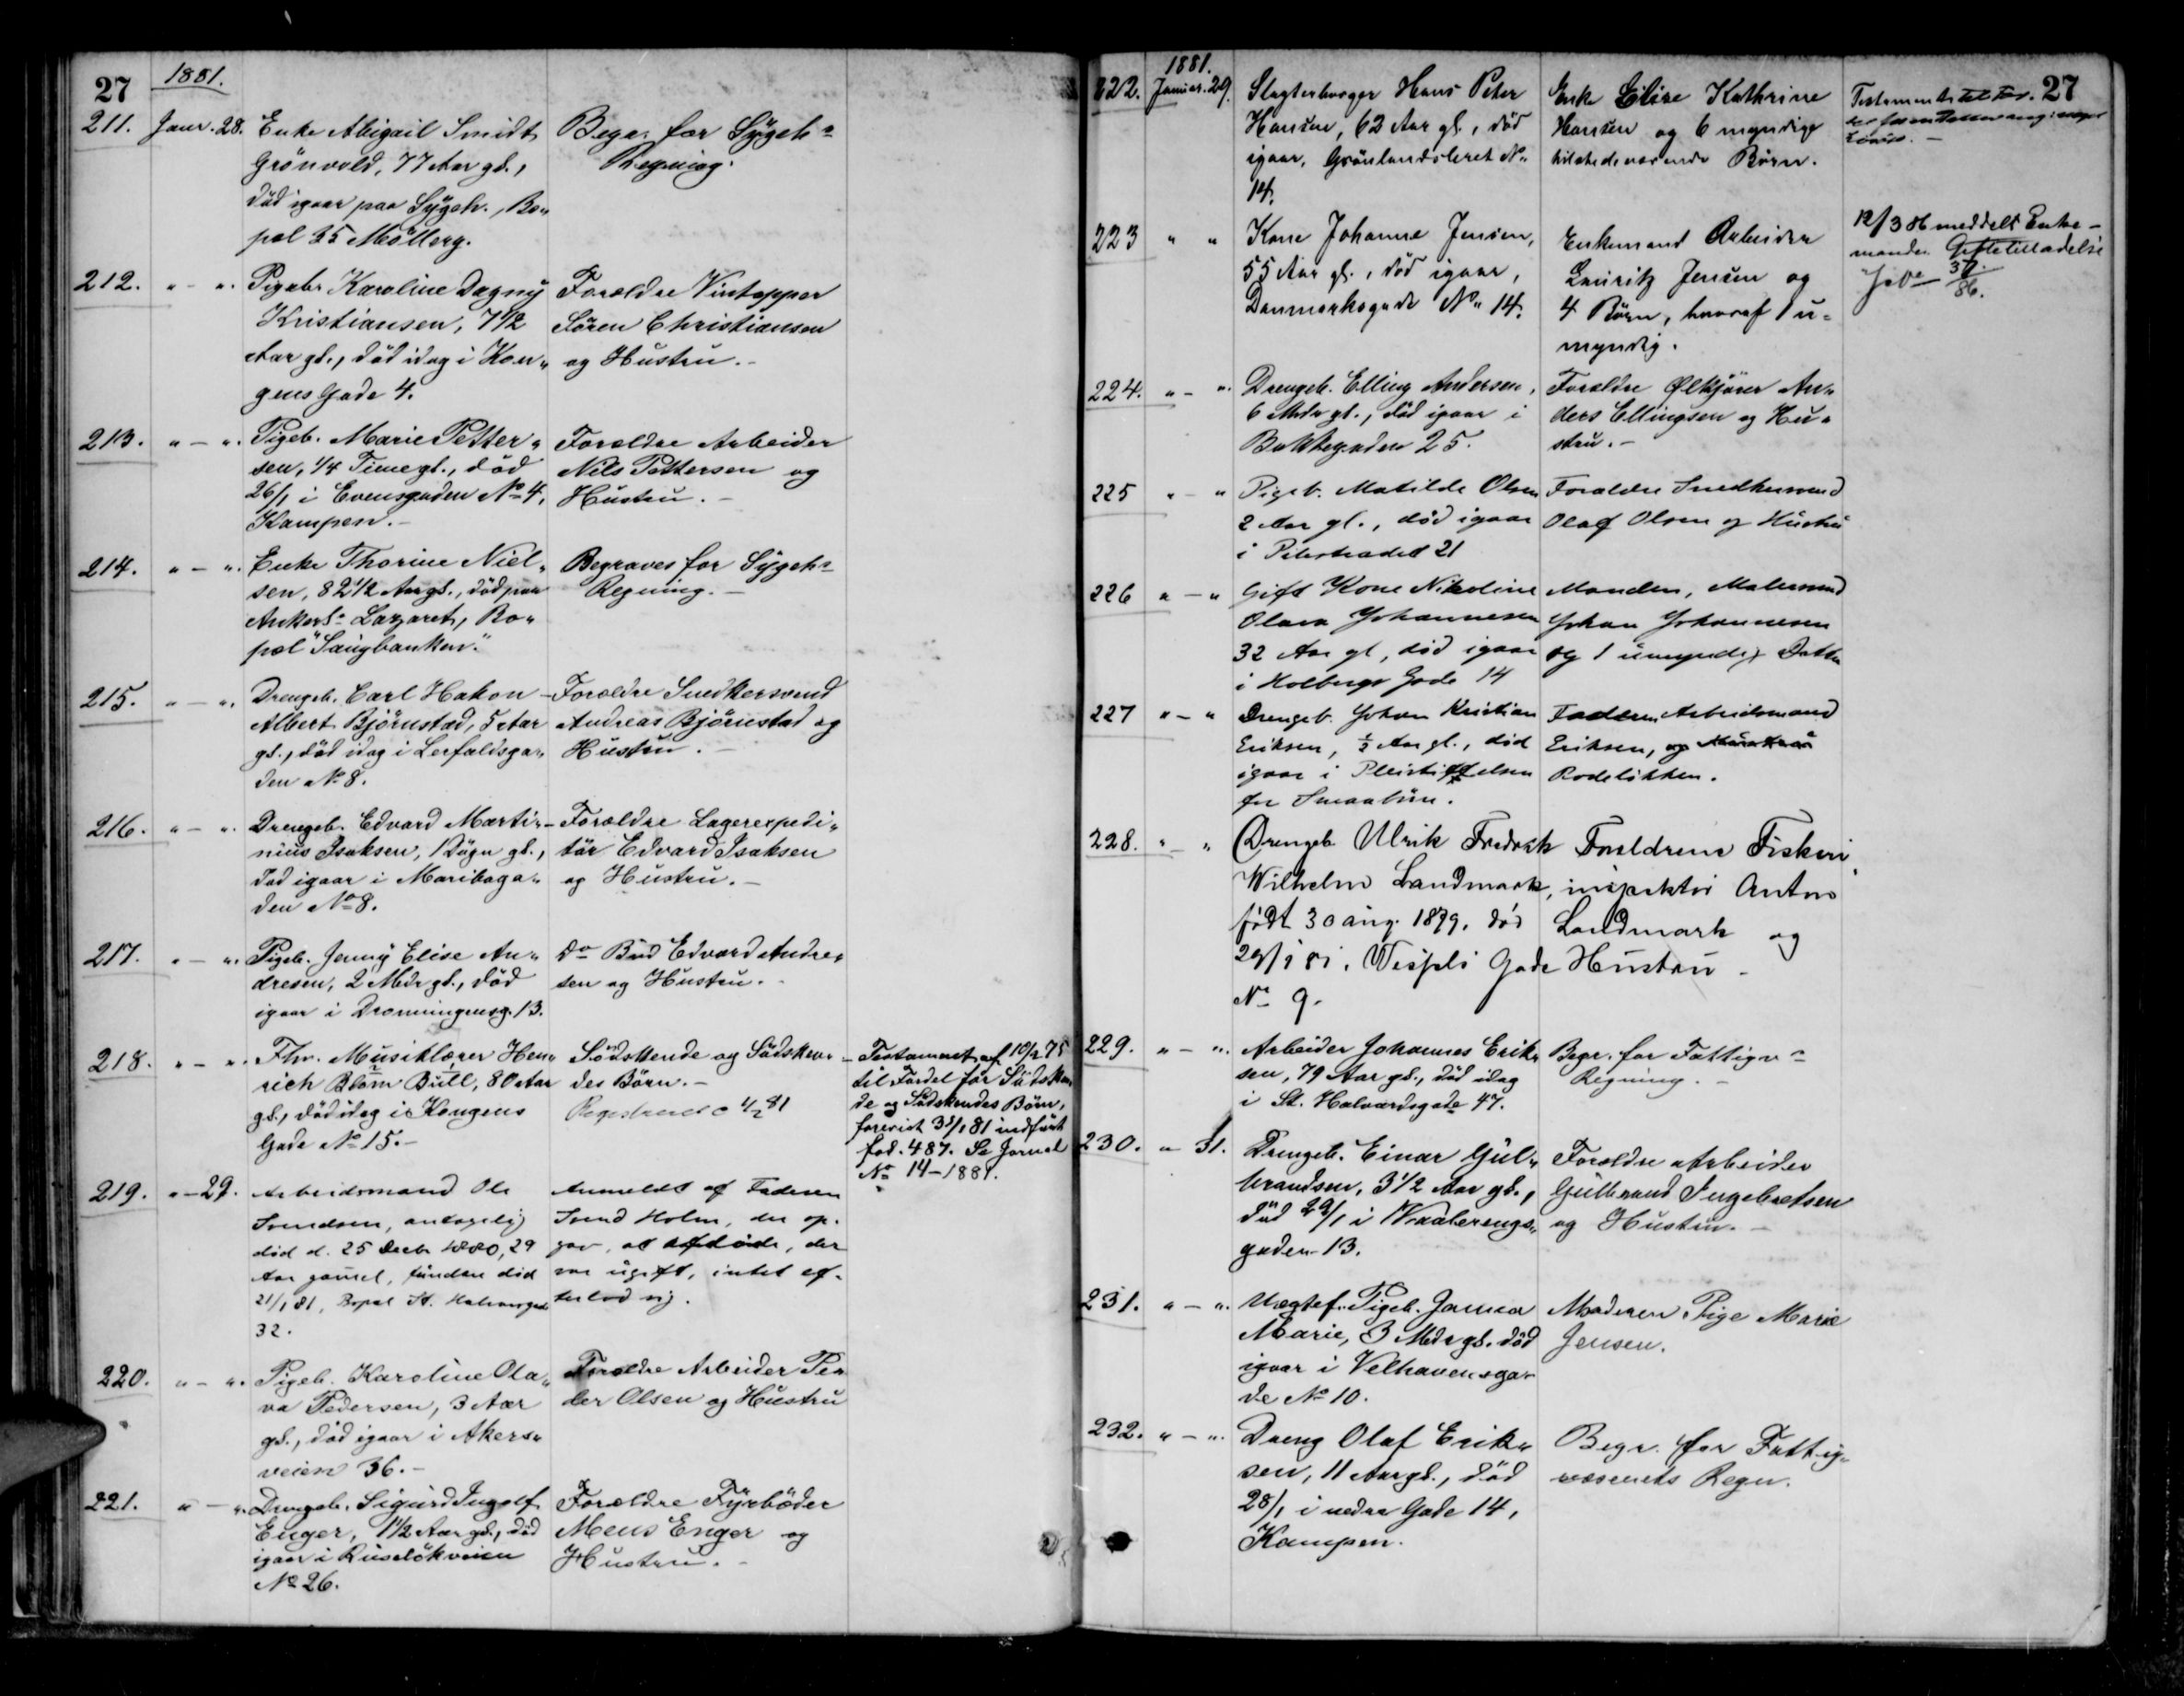 27
1881.
211. Janr. 28. Enke Abigail Smidt
Grönvold, 77 Aar gl.,
död igaar paa Sygeh., Bo„
pæl 35 Möllerg.
Begr. for Sygeh.
Regning.
212. „ - „. Pigebr Karoline Dagny
Kristiansen, 7 1/2
Aar gl., död idag i Kon„
gens Gade 4.
Forældre Vintapper
Sören Christiansen
og Hustru. -
213. „ - „. Pigeb. Marie Petter„
sen, 1/4 Time gl., död
26/1 i Evensgaden No 4,
Kampen. -
Forældre Arbeider
Nils Pettersen og
Hustru. -
214. „ - „. Enke Thorine Niel„
sen, 82 1/2 Aar gl., död paa
Ankerl. Lazaret, Bo„
pæl "Saugbanken".
Begraves for Sygeh.
Regning. -
215. „ - „. Drengeb. Carl Hakon
Albert Björnstad, 5 Aar
gl., död idag i Lerfaldsga„
den No 8.
Forældre Snedkersvend
Andreas Björnstad og
Hustru. -
216. „ - „. Drengeb. Edvard Marti„
nius Isaksen, 1 Dögn gl.,
død igaar i Mariboga„
den No 8.
Forældre Lagerexpedi„
tör Edvard Isaksen
og Hustru. -
217. „ - „. Pigeb. Jenny Elise An„
dresen, 2 Mdr gl., död
igaar i Dronningensg. 13.
Do Bud Edvard Andre„
sen og Hustru. -
218. „ - „. Fhv. Musiklærer Hen„
rich Blom Bull, 80 Aar
gl., död idag i Kongens
Gade No 15. -
Södskende og Södsken„
des Börn. -
Registreret 4/2 81
Testament af 10/2 75
til Fordel for Södsken„
de og Södskendes Börn,
forevist 31/1 81 indfört
fol. 487. Se Jornal
No 14 - 1881.
219. „ - 29. Arbeidsmand Ole
Svendsen, antagelig
död d. 25 Decbr 1880, 29
Aar gammel, funden död
21/1 81, Bopæl St. Halvorsgade
32.
Anmeldt af Faderen
Svend Holm, der op„
gav, at afdöde, der
var ugift, intet ef„
terlod sig.
220. „ - „. Pigeb. Karoline Ola„
va Pedersen, 3 Aar
gl., död igaar i Akers„
veien 36. -
Forældre Arbeider Pe„
der Olsen og Hustru
221. „ - „. Drengeb. Sigurd Ingolf
Enger, 1 1/2 Aar gl., död
igaar i Ruselökveien
No 26.
Forældre Fyrböder
Mens Enger og
Hustru. -
27
1881.
222. Januar. 29. Slagterborger Hans Peter
Hansen, 62 Aar gl., död
igaar, Grönlandsleret No
14.
Enke Elise Kathrine
Hansen og 6 myndige
tilstedeværende Börn.
Testament
223 „ „ Kone Johanne Jensen,
55 Aar gl., död igaar,
Danmarksgade No 14.
Enkemand Arbeider
Lauritz Jensen og
4 Börn, hvoraf 1 u-
myndig.
12/3 86 meddelt Enke-
manden Giftetilladelse
37.
86.
224. „ - „. Drengeb. Elling Andersen,
6 Mdr gl., död igaar i
Bakkegaden 25.
Forældre Ølkjörer An„
ders Ellingsen og Hu„
stru. -
225 „ - „ Pigeb. Matilde Olsen
2 Aar gl., död igaar
i Pilestradet 21
Forældre Snedkersvend
Olaf Olsen og Hustru
226 „ - „ Gift Kone Nikoline
Olava Johannesen
32 Aar gl, död igaar
i Holbergs Gade 14
Manden, Malersvend
Johan Johannesen
og 1 umyndig Datter
227 „ - „ Drengeb. Johan Kristian
Eriksen, 1/2 Aar gl., död
igaar i Pleiestiftelsen
for Smaabörn.
Faderen Arbeidsmand
Eriksen, og Hustru
Rodelökken.
228. „ - „ Drengeb. Ulrik Fredrik
Wilhelm Landmark,
födt 30 aug. 1879, död
29/1 81. Wessels Gade
No 9.
Forældrene Fiskeri„
inspektör Anton
Landmark og
Hustru -
229. „ - „. Arbeider Johannes Erik„
sen, 79 Aar gl., död idag
i St. Halvardsgade 47.
Begr. for Fattigv.
Regning. -
230. „ 31. Drengeb. Einar Gul„
brandsen, 3 1/2 Aar gl.,
död 29/1 i Waalerengs„
gaden 13.
Forældre Arbeider
Gulbrand Ingebretsen
og Hustru. -
231. „ - „. Uægtef. Pigeb. Janna
Marie, 3 Mdr gl. död
igaar i Velhavensga„
de No 10.
Moderen Pige Marie
Jensen.
232. „ - „. Dreng Olaf Erik„
sen, 11 Aar gl., död
28/1 i nedre Gade 14,
Kampen.
Begr. for Fattig„
væsenets Regn.